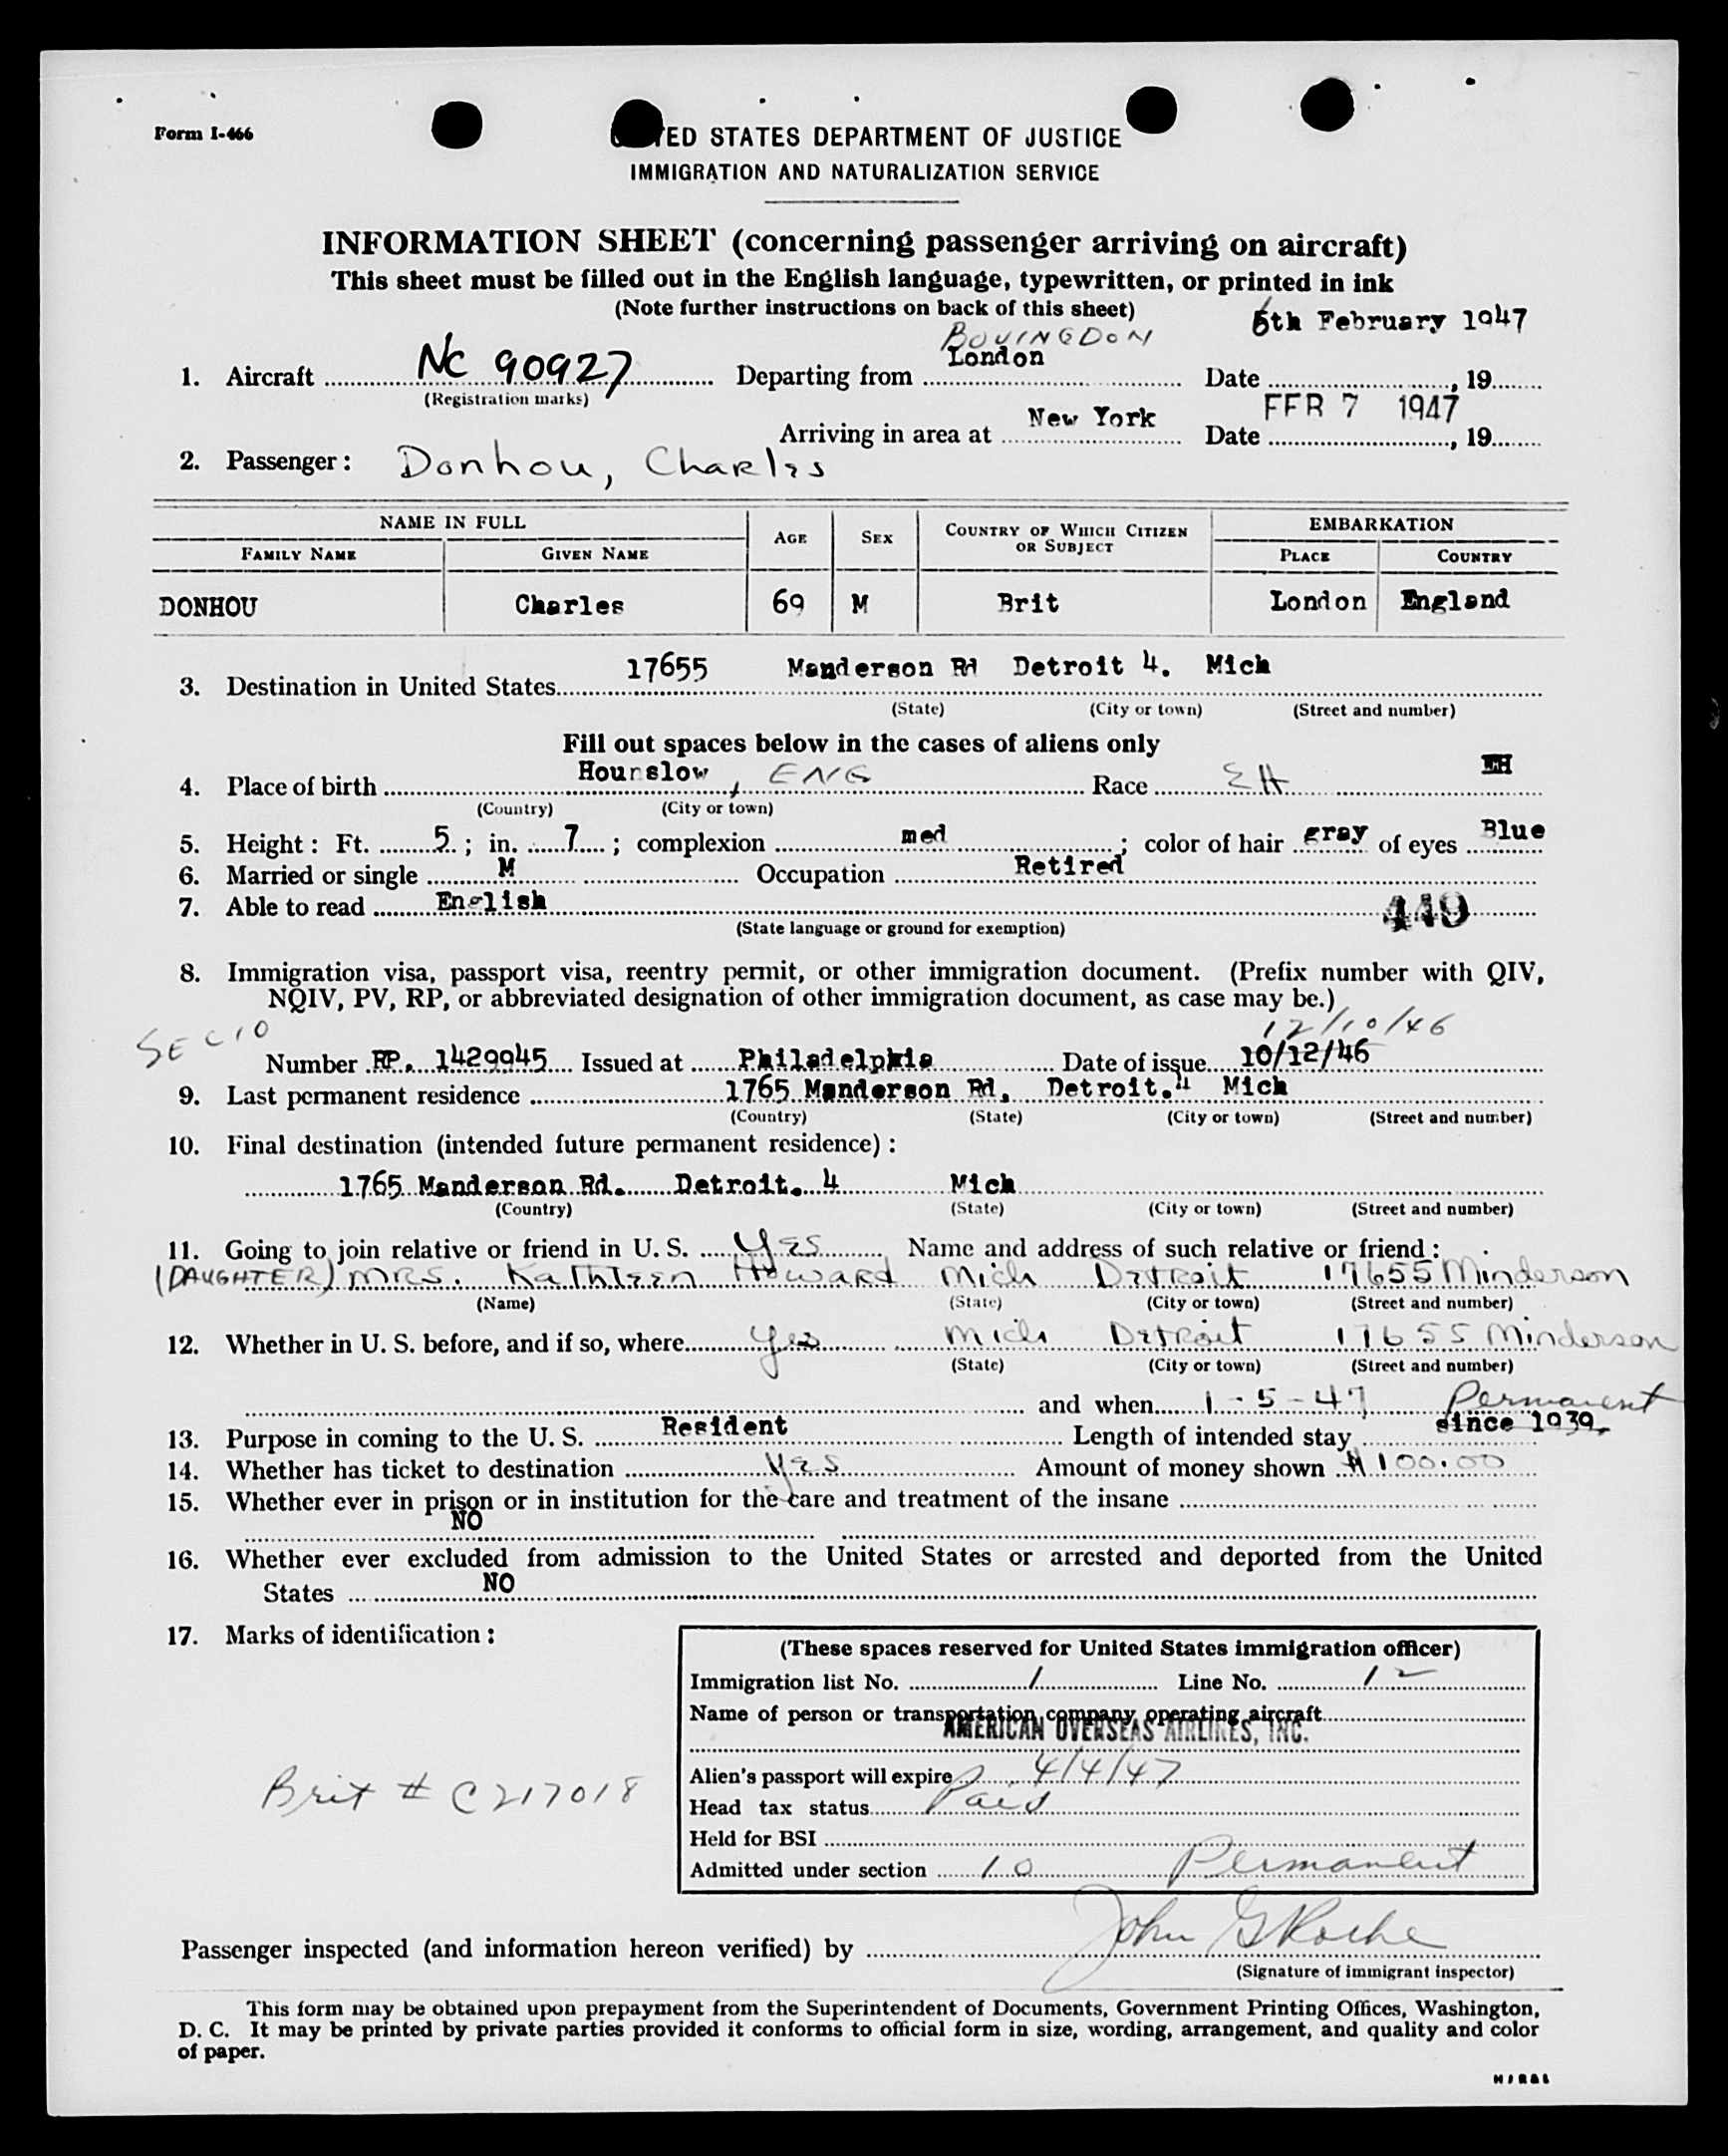 Form I-466
ED STATES DEPARTMENT OF JUSTICE
IMMIGRATION AND NATURALIZATION SERVICE
INFORMATION SHEET (concerning passenger arriving on aircraft)
This sheet must be filled out in the English language, typewritten, or printed in ink
(Note further instructions on back of this sheet)
6th February 1947
BOVINGDON
1. Aircraft NC 90927 Departing from London Date , 19
(Registration marks)
Arriving in area at New York Date FEB 7 1947 , 19
2. Passenger: Donhou, Charles
NAME IN FULL AGE SEX COUNTRY OF WHICH CITIZEN OR SUBJECT EMBARKATION
FAMILY NAME GIVEN NAME PLACE COUNTRY
DONHOU Charles 69 M Brit London England
3. Destination in United States 17655 Manderson Rd Detroit 4. Mich
(State) (City or town) (Street and number)
Fill out spaces below in the cases of aliens only
4. Place of birth Hounslow, ENG Race EH
(Country) (City or town)
5. Height: Ft. 5; in. 7; complexion med; color of hair gray of eyes Blue
6. Married or single M Occupation Retired
7. Able to read English 449
(State language or ground for exemption)
8. Immigration visa, passport visa, reentry permit, or other immigration document. (Prefix number with QIV,
NQIV, PV, RP, or abbreviated designation of other immigration document, as case may be.)
SEC 10 12/10/46
Number RP. 1429945 Issued at Philadelphia Date of issue 10/12/46
9. Last permanent residence 1765 Manderson Rd, Detroit. 4 Mich
(Country) (State) (City or town) (Street and number)
10. Final destination (intended future permanent residence):
1765 Manderson Rd. Detroit. 4 Mich
(Country) (State) (City or town) (Street and number)
11. Going to join relative or friend in U. S. Yes Name and address of such relative or friend:
(DAUGHTER) MRS. Kathleen Howard Mich Detroit 17655 Minderson
(Name) (State) (City or town) (Street and number)
12. Whether in U. S. before, and if so, where yes Mich Detroit 17655 Minderson
(State) (City or town) (Street and number)
and when 1-5-47 Permanent
13. Purpose in coming to the U. S. Resident Length of intended stay since 1939.
14. Whether has ticket to destination Yes Amount of money shown $100.00
15. Whether ever in prison or in institution for the care and treatment of the insane
NO
16. Whether ever excluded from admission to the United States or arrested and deported from the United
States NO
17. Marks of identification:
(These spaces reserved for United States immigration officer)
Immigration list No. 1 Line No. 12
Name of person or transportation company operating aircraft
AMERICAN OVERSEAS AIRLINES, INC.
Alien's passport will expire 4/4/47
Brit # C217018
Head tax status Paid
Held for BSI
Admitted under section 10 Permanent
Passenger inspected (and information hereon verified) by John G Roche
(Signature of immigrant inspector)
This form may be obtained upon prepayment from the Superintendent of Documents, Government Printing Offices, Washington,
D. C. It may be printed by private parties provided it conforms to official form in size, wording, arrangement, and quality and color
of paper.